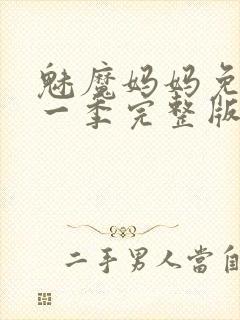 魅魔妈妈免
一季完整版
二手男人當自